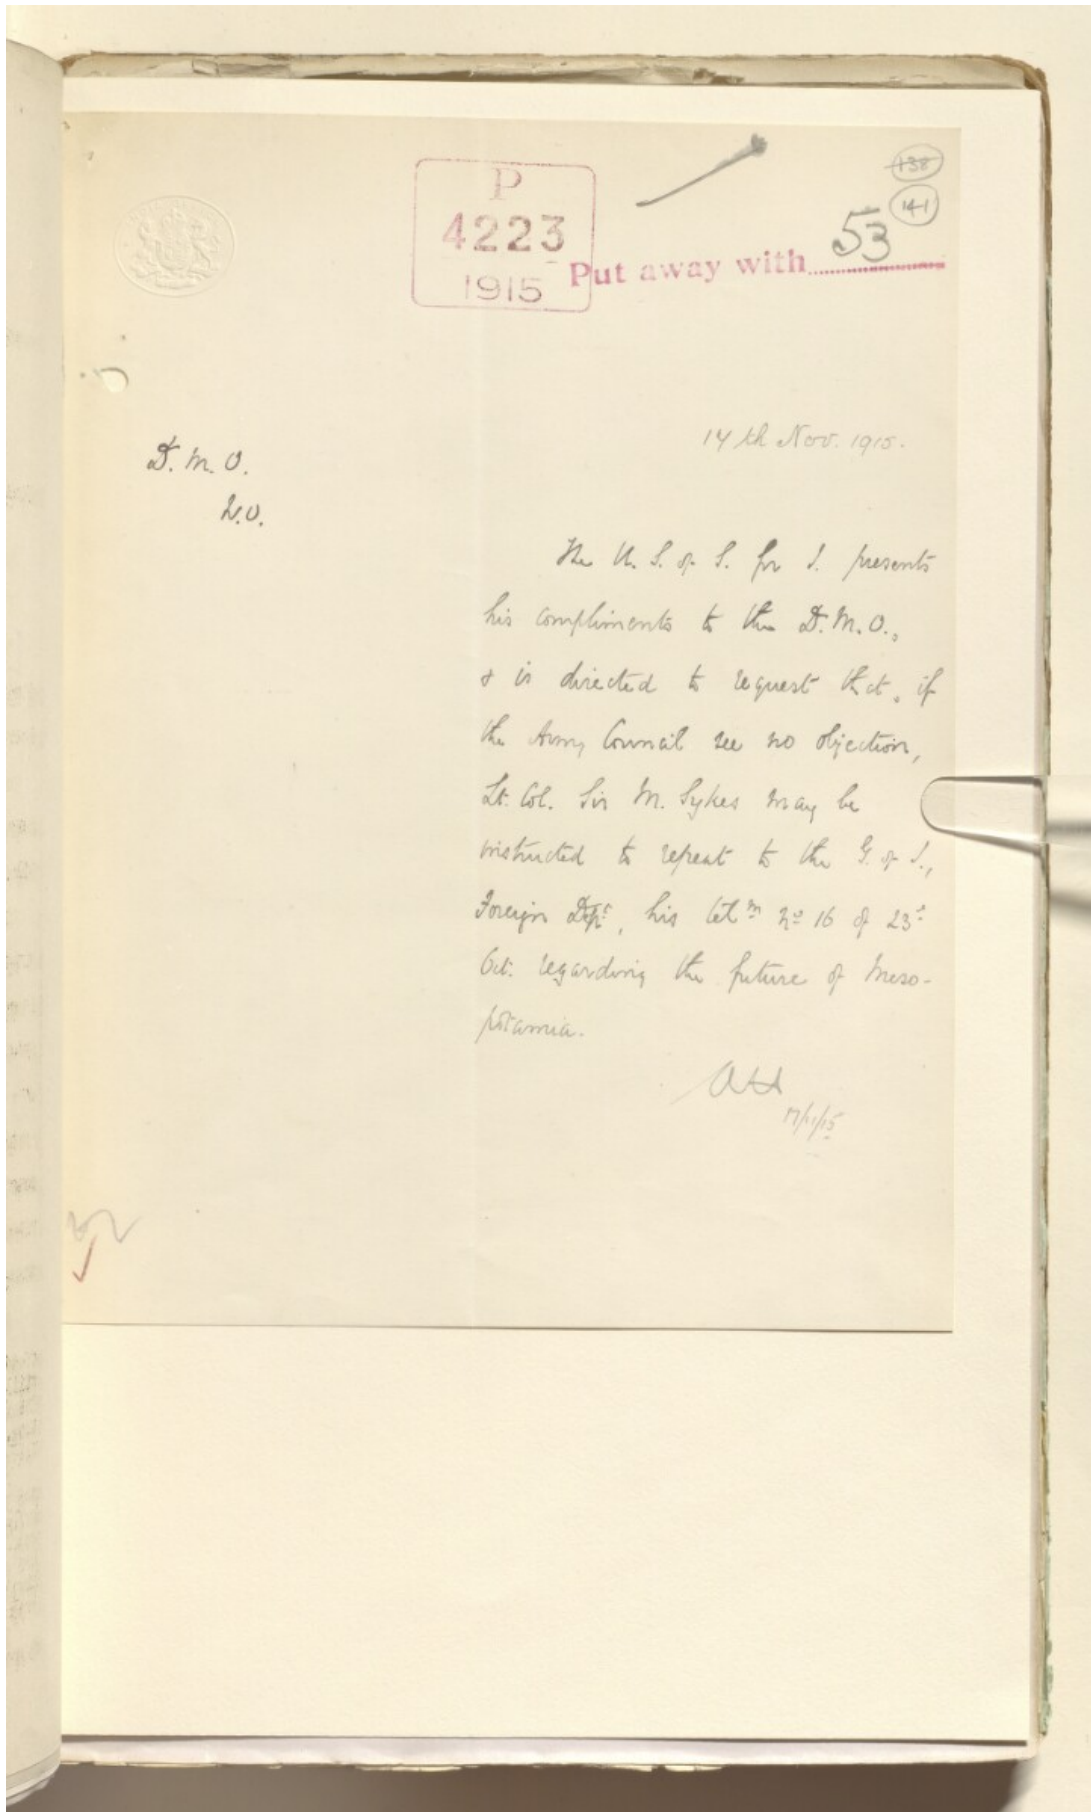 138
141
P
4223
1915
Put away with 53
14th Nov. 1915.
D. M. O.
W.O.
The U. S. of S. for I. presents
his compliments to the D. M. O.,
& is directed to request that, if
the Army Council see no objection,
Lt. Col. Sir M. Sykes may be
instructed to repeat to the G. of I.,
Foreign Dept, his telm No 16 of 23rd
Oct. regarding the future of Meso-
potamia.